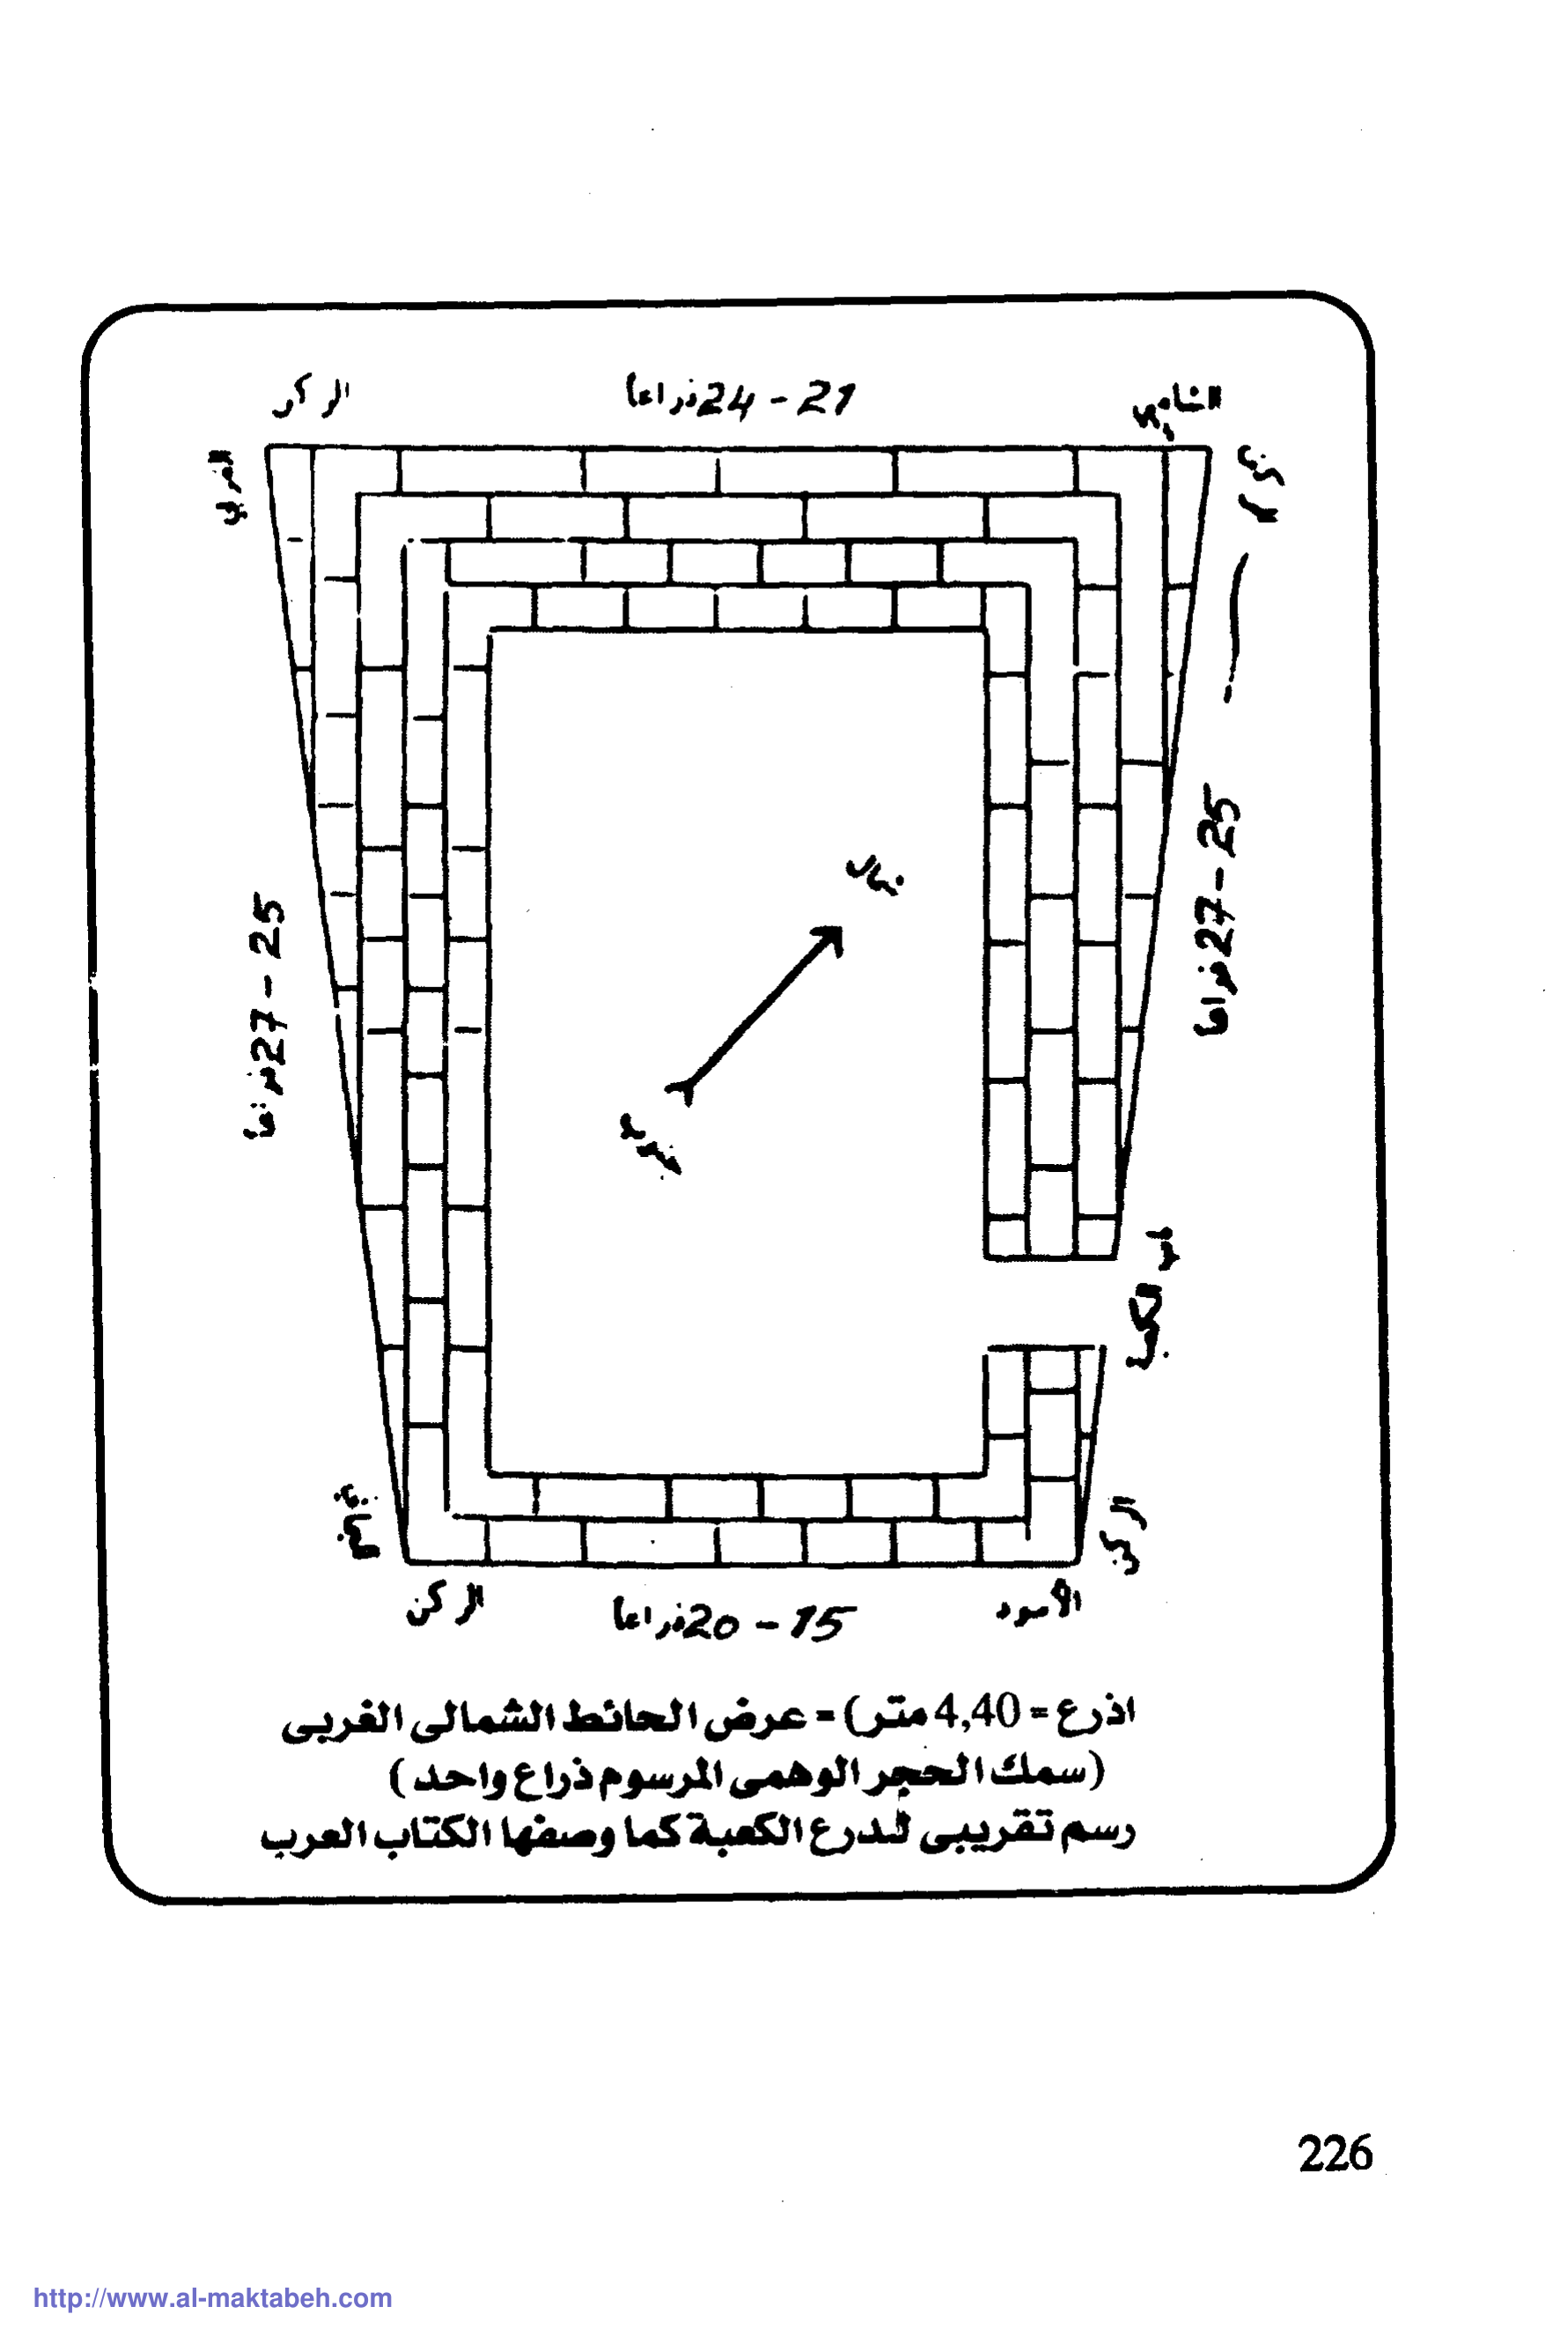 الركن
24 - 21 ذراعا
الشامي
الغربي
الركن
27 - 25 ذراعا
27 - 25 ذراعا
شمال
جنوب
باب الكعبة
اليماني
الركن
الركن
20 - 15 ذراعا
الأسود
اذرع = 4,40 متر) = عرض الحائط الشمالى الغربى
(سمك الحجر الوهمى المرسوم ذراع واحد)
رسم تقريبى لدرع الكعبة كما وصفها الكتاب العرب
226
http://www.al-maktabeh.com